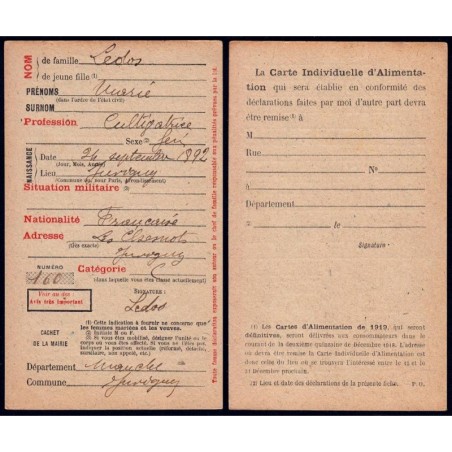 NOM
de famille Ledos
de jeune fille (1)
PRÉNOMS Marie
(dans l'ordre de l'état civil)
SURNOM
Profession Cultivatrice
Sexe fem
NAISSANCE
Date 24 septembre 1892
(Jour, Mois, Année)
Lieu Juvigny
(Commune ou, pour Paris, Arrondissement)
Situation militaire
Nationalité Française
Adresse Les
(des mairie)
Juvigny
NUMÉRO
160
Catégorie C
(dans laquelle vous êtes classé actuellement)
Voir au dos
Avis très important
SIGNATURE :
Ledos
CACHET
DE LA MAIRIE
(1) Cette indication à fournir ne concerne que
les femmes mariées et les veuves.
Département Manche
Commune Juvigny
Toute fausse déclaration exposerait son auteur ou le chef de famille responsable aux pénalités prévues par la loi.
La Carte Individuelle d'Alimenta-
tion qui sera établie en conformité des
déclarations faites par moi d'autre part devra
être remise à
M
Rue
No
à
Département
le
Signature :
(1) Les Cartes d'Alimentation de 1919, qui seront
définitives, seront délivrées aux consommateurs dans
le courant de la deuxième quinzaine de Décembre 1918. L'adresse où
devra être envoyée la Carte Individuelle d'Alimentation est
donc celle du lieu où se trouvera l'intéressé entre le 15 et le
31 Décembre prochain.
(2) Lieu et date des déclarations de la présente fiche.